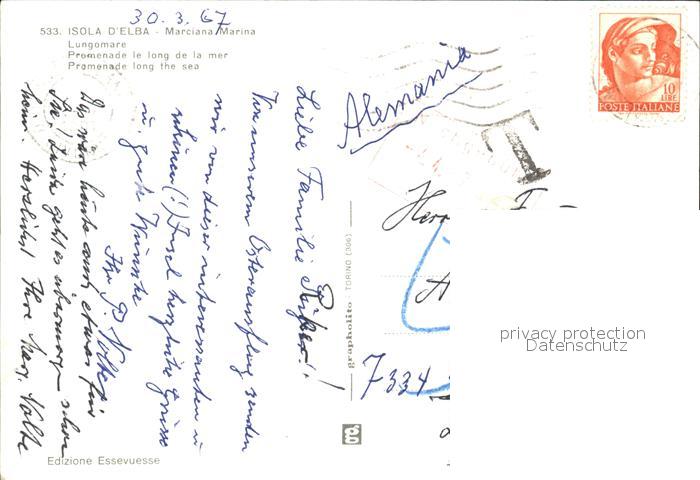 30.3.67
533. ISOLA D'ELBA - Marciana Marina
Lungomare
Promenade le long de la mer
Promenade long the sea
Liebe Familie
Von unserem Osterausflug senden
wir von dieser interessanten u.
schönen (!) Insel herzliche Grüsse
u. gute Wünsche
Ihr P. Nolte
Das wäre heute auch etwas für
Sie! Leider geht es übermorgen schon
heim. Herzlichst Ihre Marg. Nolte
Edizione Essevuesse
grapholito - TORINO (306)
g
Alemania
T
10
LIRE
POSTE ITALIANE
Herr
7334
privacy protection
Datenschutz